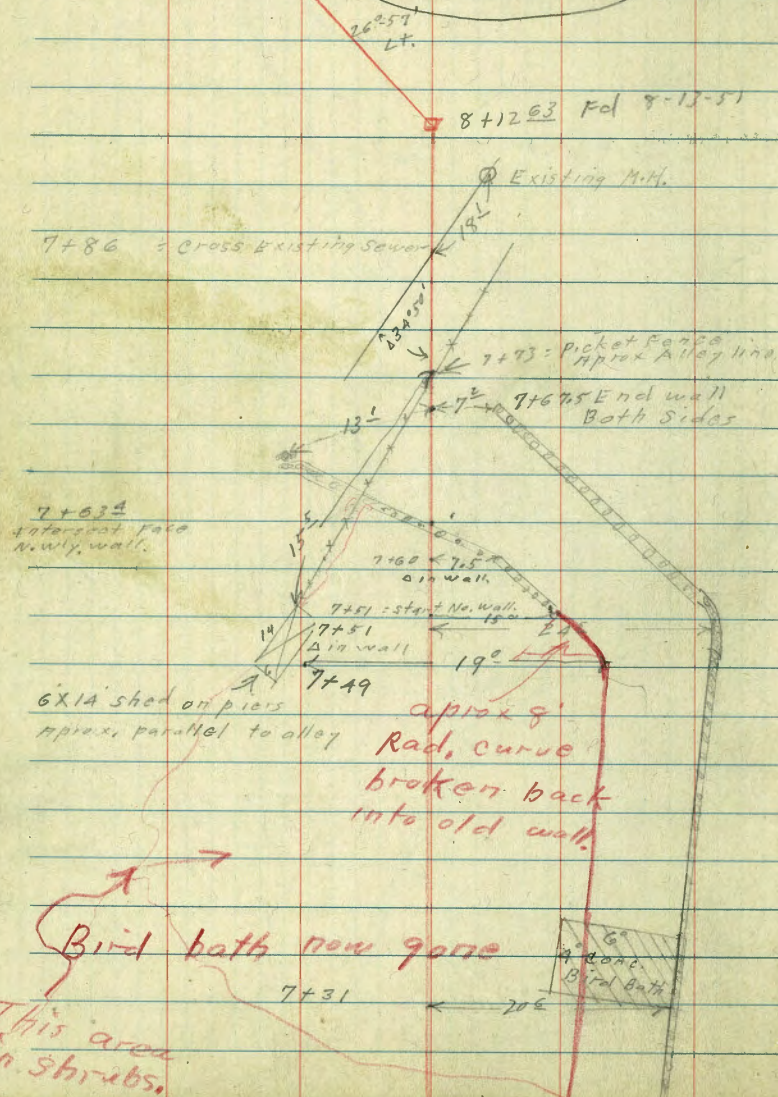 26°-57'
Lt.
8+12 63 Fd 8-13-51
Existing M.H.
18 1
7+86 = Cross Existing Sewer
Δ34°50'
7+73 = Picket Fence
Aprox Alley line
7 2
7+67.5 End wall
Both Sides
13 1
7+63 4
Intersect Face
N.wly. wall.
15 5
7+60 7.5
Δ in wall.
7+51 = Start No. wall.
15
24
14
7+51
Δ in wall
19 0
7+49
6
6X14 shed on piers
Aprox. parallel to alley
aprox 8'
Rad. curve
broken back
into old wall.
Bird bath now gone
6 0
4 0 conc.
Bird Bath
7+31
20 6
This area
in shrubs.